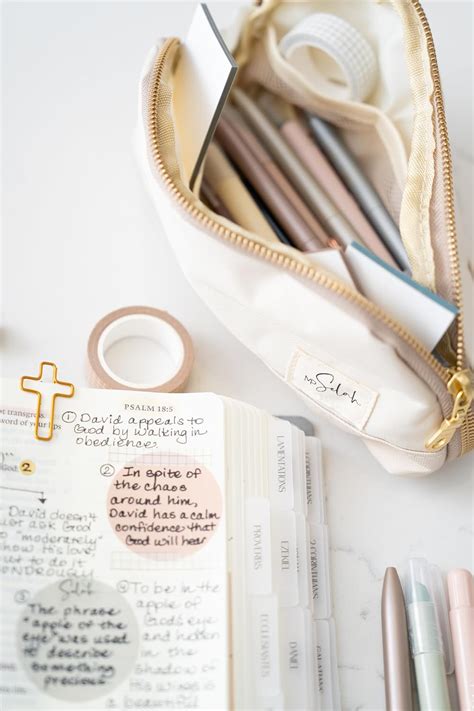 Mr.
Selah
Mrs
Selah
PSALM 18:5
① David appeals to
God by walking in
obedience.
transgress
word of your lips
2
② In spite of
the chaos
around him,
David has a calm
confidence that
God will hear
David doesn't
just ask God
to "moderately"
show His love
to do it
WONDROUSLY
③ To be in the
apple of
God's eye
and hidden
in the
shadow of
His wings is
a beautiful
Selah
The phrase
"apple of
the eye" was used
to describe
something
precious
LAMENTATIONS
EZEKIEL
ECCLESIASTES
DANIEL
2 CORINTHIANS
GALATIANS